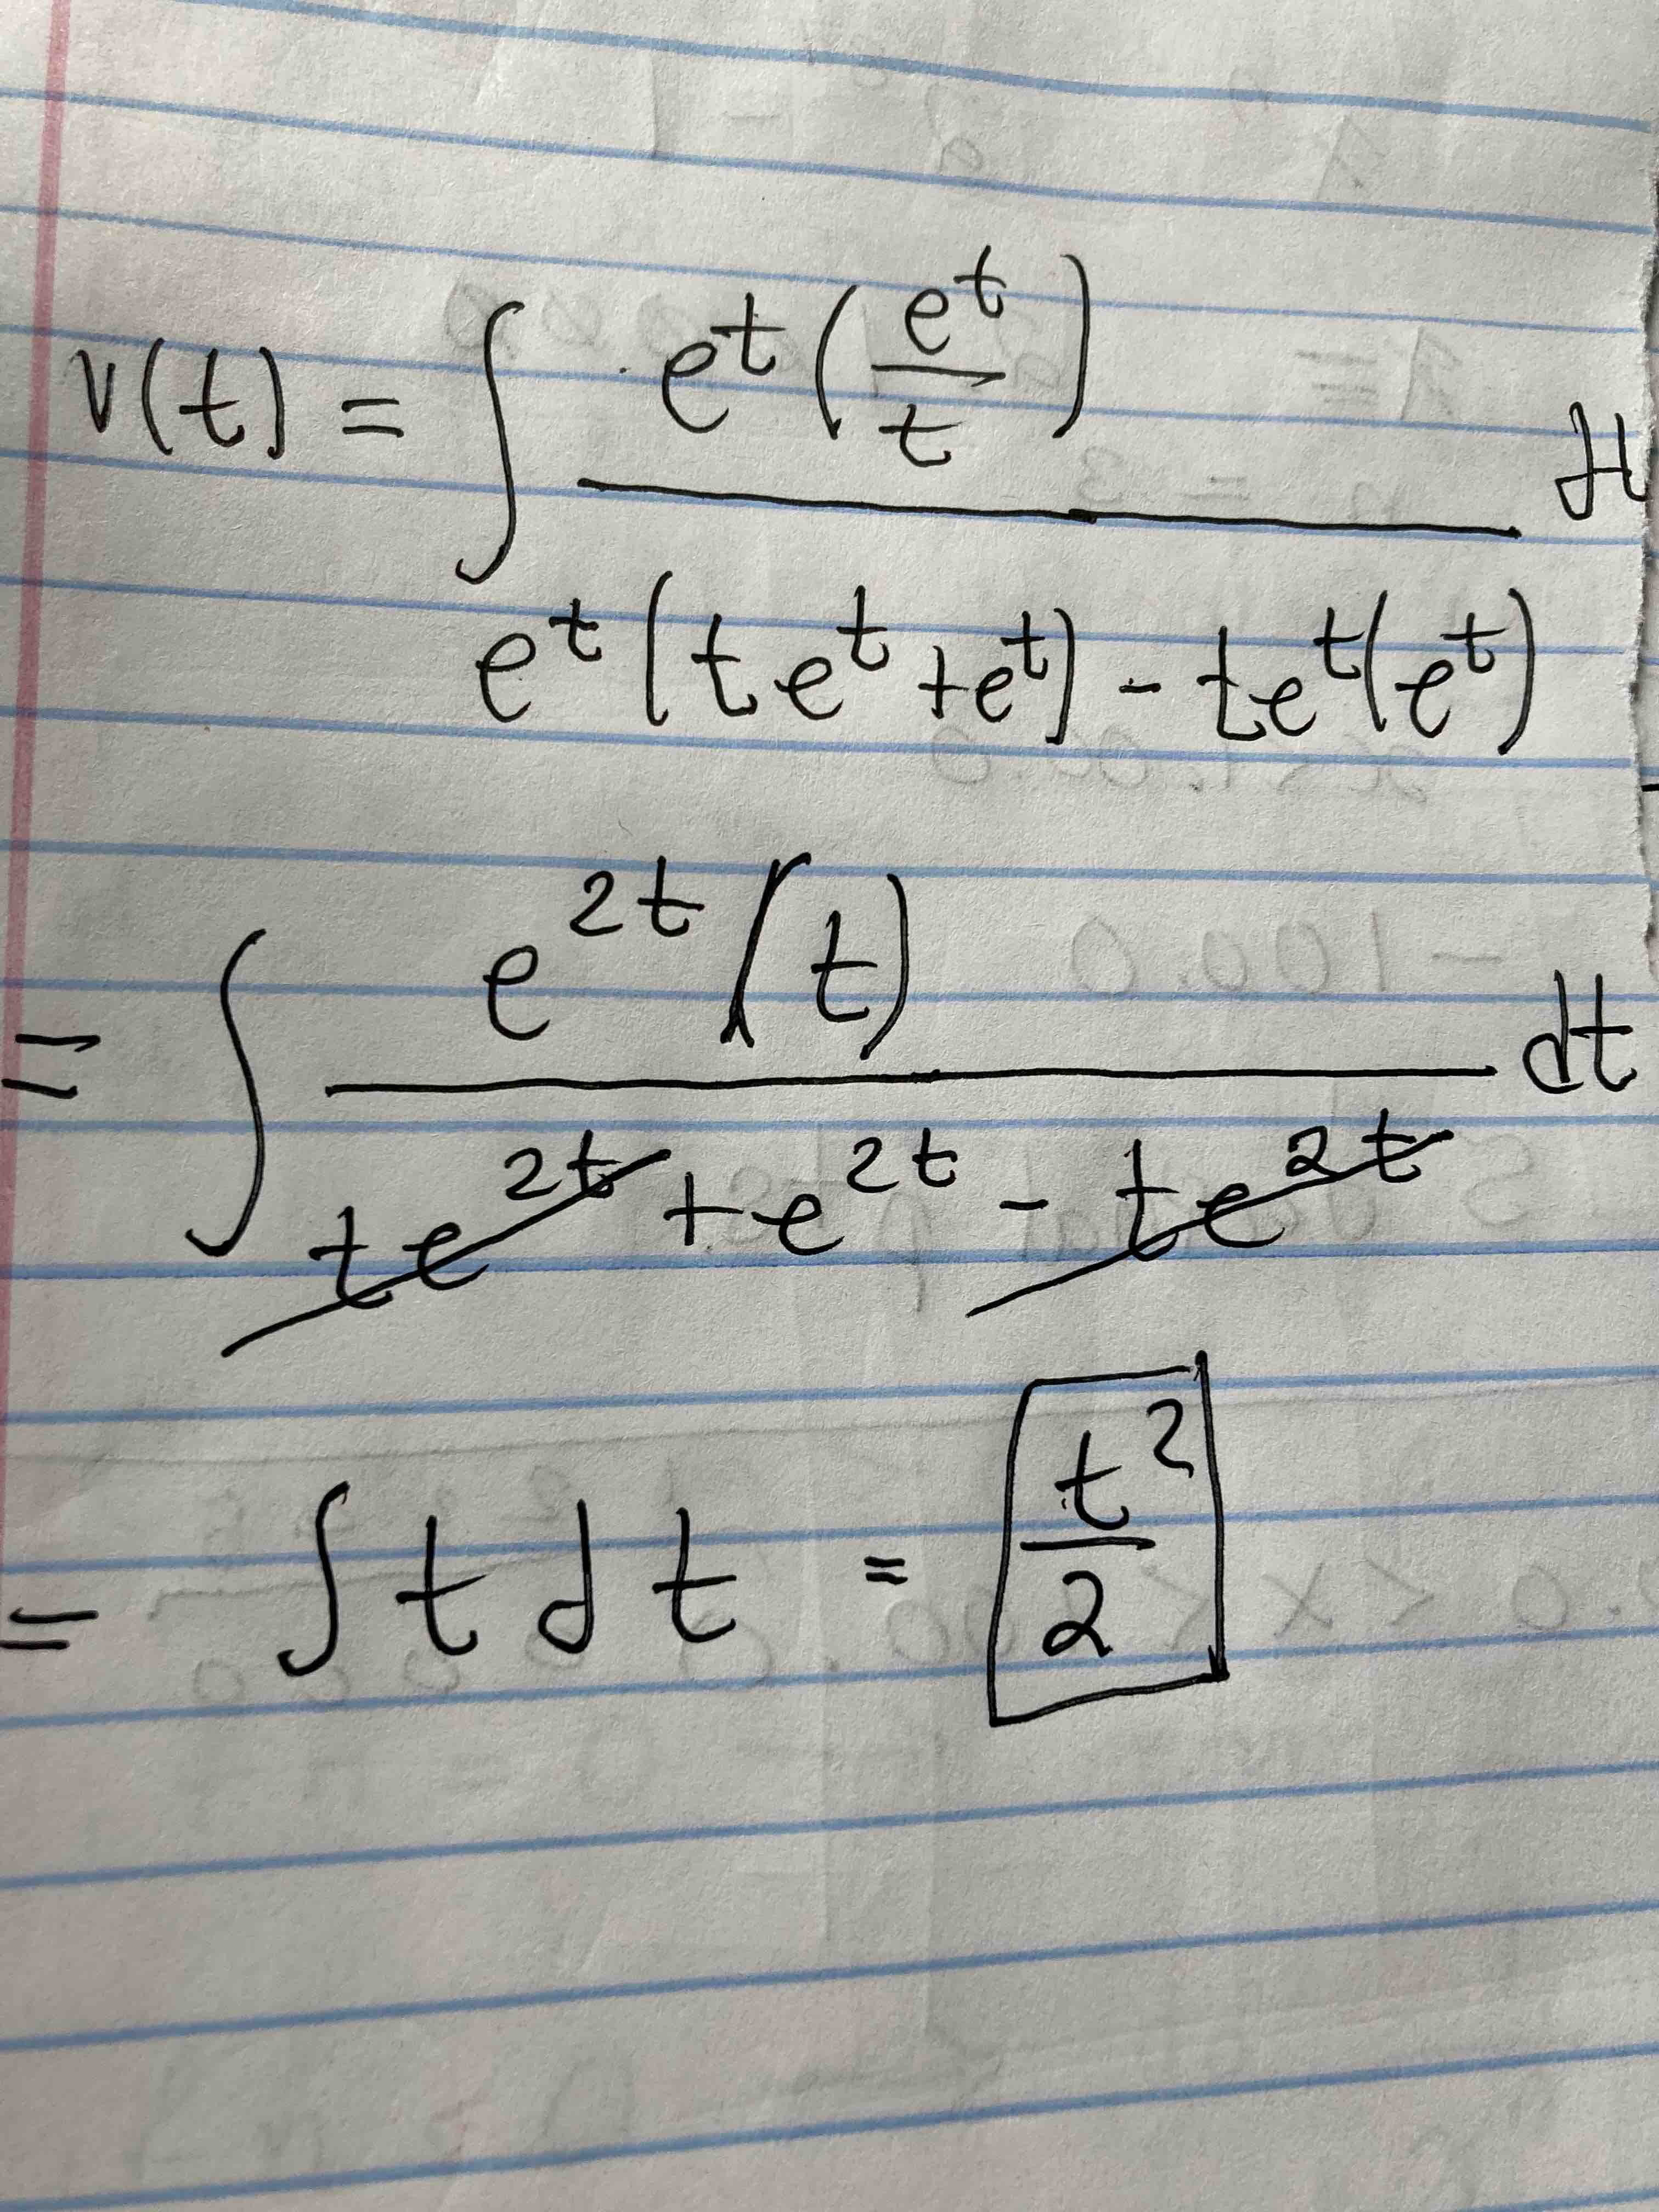 v(t) = ∫ e^t (e^t / t) / (e^t (t e^t + e^t) - t e^t (e^t)) dt
= ∫ e^{2t} (t) / (t e^{2t} + e^{2t} - t e^{2t}) dt
= ∫ t dt = t^2 / 2